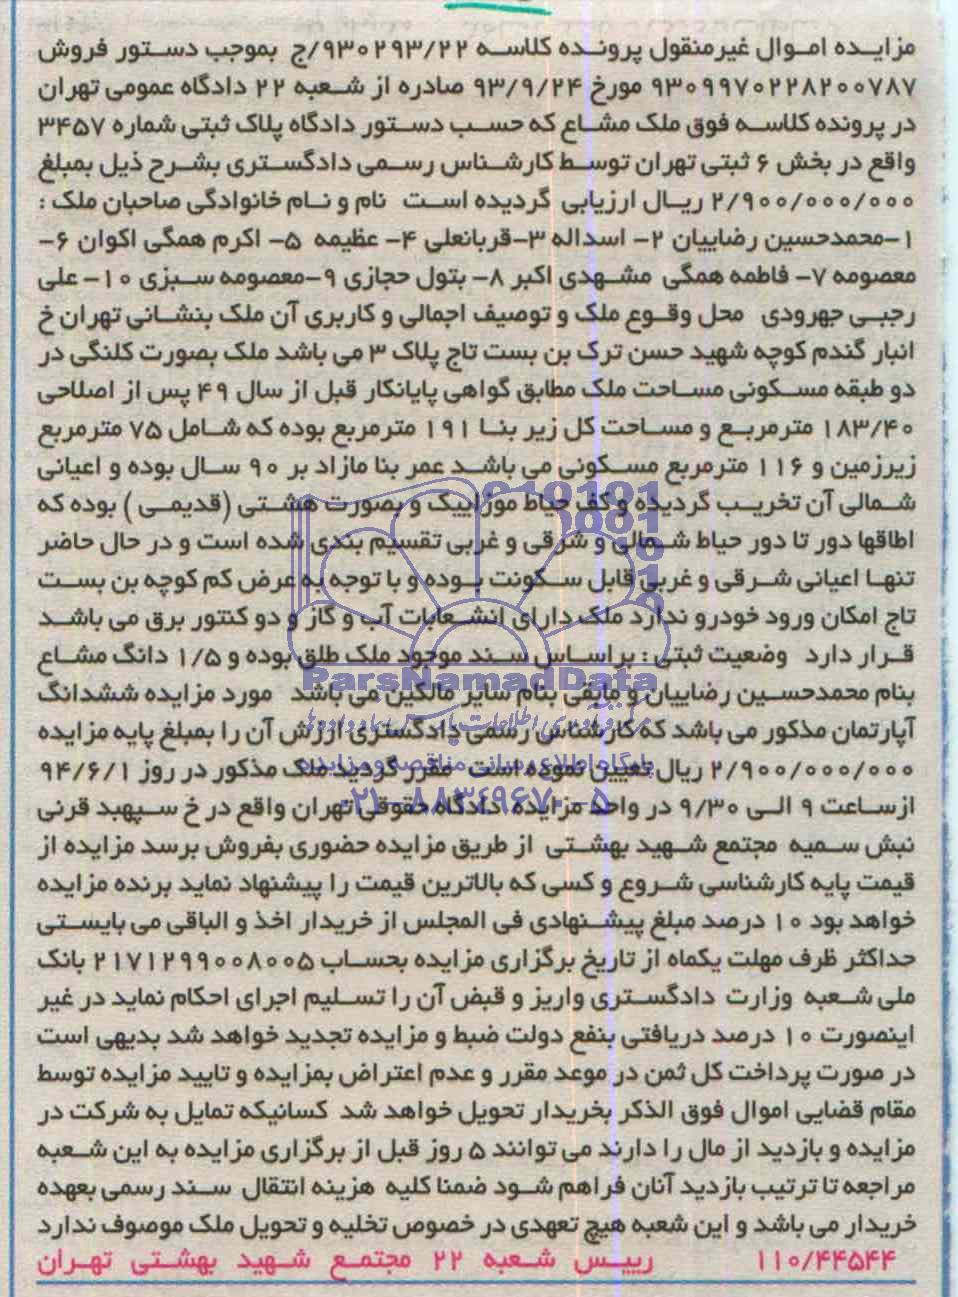 مزایده اموال غیرمنقول پرونده کلاسه ۹۳۰۲۹۳/۲۲/ج بموجب دستور فروش
۹۳۰۹۹۷۰۲۲۸۲۰۰۷۸۷ مورخ ۹۳/۹/۲۴ صادره از شعبه ۲۲ دادگاه عمومی تهران
در پرونده کلاسه فوق ملک مشاع که حسب دستور دادگاه پلاک ثبتی شماره ۳۴۵۷
واقع در بخش ۶ ثبتی تهران توسط کارشناس رسمی دادگستری بشرح ذیل بمبلغ
۲/۹۰۰/۰۰۰/۰۰۰ ریال ارزیابی گردیده است نام و نام خانوادگی صاحبان ملک :
۱-محمدحسین رضاییان ۲- اسداله ۳-قربانعلی ۴- عظیمه ۵- اکرم همگی اکوان ۶-
معصومه ۷- فاطمه همگی مشهدی اکبر ۸- بتول حجازی ۹-معصومه سبزی ۱۰- علی
رجبی جهرودی محل وقوع ملک و توصیف اجمالی و کاربری آن ملک بنشانی تهران خ
انبار گندم کوچه شهید حسن ترک بن بست تاج پلاک ۳ می باشد ملک بصورت کلنگی در
دو طبقه مسکونی مساحت ملک مطابق گواهی پایانکار قبل از سال ۴۹ پس از اصلاحی
۱۸۳/۴۰ مترمربع و مساحت کل زیر بنا ۱۹۱ مترمربع بوده که شامل ۷۵ مترمربع
زیرزمین و ۱۱۶ مترمربع مسکونی می باشد عمر بنا مازاد بر ۹۰ سال بوده و اعیانی
شمالی آن تخریب گردیده و کف حیاط موزاییک و بصورت هشتی (قدیمی ) بوده که
اطاقها دور تا دور حیاط شمالی و شرقی و غربی تقسیم بندی شده است و در حال حاضر
تنها اعیانی شرقی و غربی قابل سکونت بوده و با توجه به عرض کم کوچه بن بست
تاج امکان ورود خودرو ندارد ملک دارای انشعابات آب و گاز و دو کنتور برق می باشد
قرار دارد وضعیت ثبتی : براساس سند موجود ملک طلق بوده و ۱/۵ دانگ مشاع
ParsNamadData
بنام محمدحسین رضاییان و مابقی بنام سایر مالکین می باشد مورد مزایده ششدانگ
آپارتمان مذکور می باشد که کارشناس رسمی دادگستری ارزش آن را بمبلغ پایه مزایده
پایگاه اطلاع رسانی مناقصه و مزایده
۲/۹۰۰/۰۰۰/۰۰۰ ریال تعیین نموده است مقرر گردید ملک مذکور در روز ۹۴/۶/۱
۰۲۱-۸۸۳۴۹۶۷۰-۵
ازساعت ۹ الی ۹/۳۰ در واحد مزایده دادگاه حقوقی تهران واقع در خ سپهبد قرنی
نبش سمیه مجتمع شهید بهشتی از طریق مزایده حضوری بفروش برسد مزایده از
قیمت پایه کارشناسی شروع و کسی که بالاترین قیمت را پیشنهاد نماید برنده مزایده
خواهد بود ۱۰ درصد مبلغ پیشنهادی فی المجلس از خریدار اخذ و الباقی می بایستی
حداکثر ظرف مهلت یکماه از تاریخ برگزاری مزایده بحساب ۲۱۷۱۲۹۹۰۰۸۰۰۵ بانک
ملی شعبه وزارت دادگستری واریز و قبض آن را تسلیم اجرای احکام نماید در غیر
اینصورت ۱۰ درصد دریافتی بنفع دولت ضبط و مزایده تجدید خواهد شد بدیهی است
در صورت پرداخت کل ثمن در موعد مقرر و عدم اعتراض بمزایده و تایید مزایده توسط
مقام قضایی اموال فوق الذکر بخریدار تحویل خواهد شد کسانیکه تمایل به شرکت در
مزایده و بازدید از مال را دارند می توانند ۵ روز قبل از برگزاری مزایده به این شعبه
مراجعه تا ترتیب بازدید آنان فراهم شود ضمنا کلیه هزینه انتقال سند رسمی بعهده
خریدار می باشد و این شعبه هیچ تعهدی در خصوص تخلیه و تحویل ملک موصوف ندارد
۱۱۰/۴۴۵۴۴ رییس شعبه ۲۲ مجتمع شهید بهشتی تهران